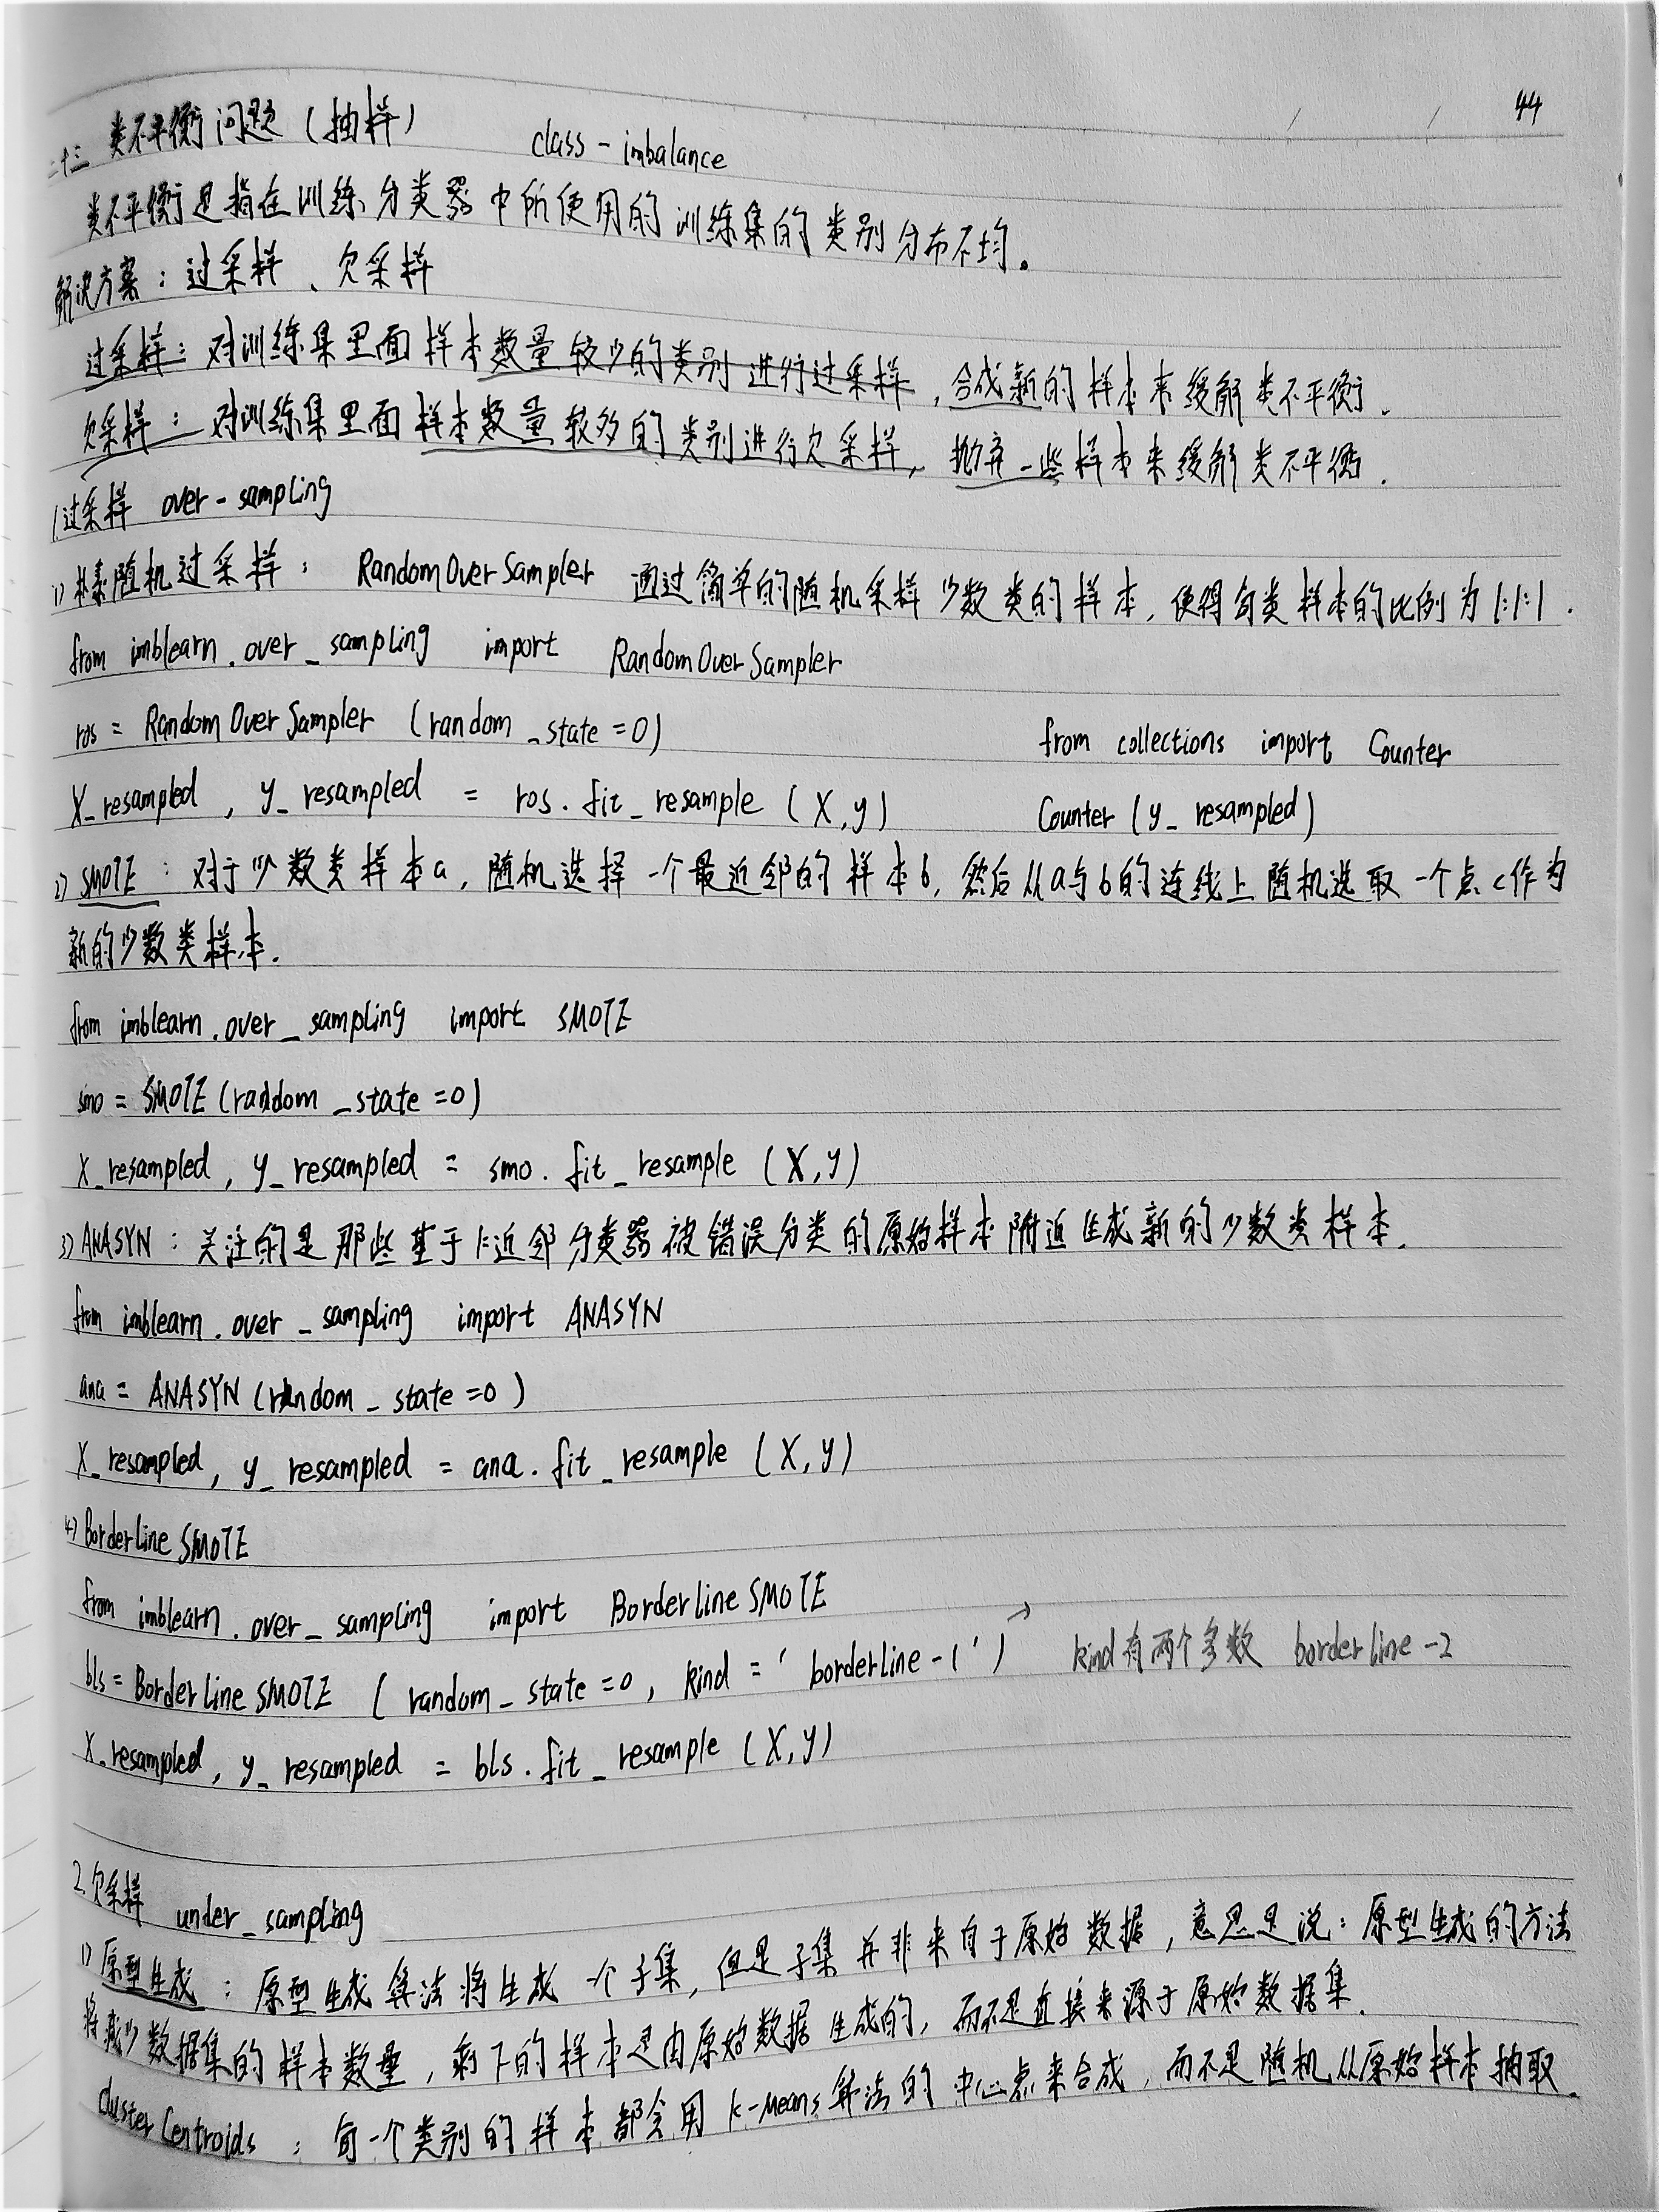 44
二十三 类不平衡问题（抽样） class-imbalance
类不平衡是指在训练分类器中所使用的训练集的类别分布不均。
解决方案：过采样、欠采样
过采样：对训练集里面样本数量较少的类别进行过采样，合成新的样本来缓解类不平衡.
欠采样：对训练集里面样本数量较多的类别进行欠采样，抛弃一些样本来缓解类不平衡.
1.过采样 over-sampling
1) 朴素随机过采样： RandomOverSampler 通过简单的随机采样少数类的样本，使得每类样本的比例为1:1:1.
from imblearn.over_sampling import RandomOverSampler
ros = RandomOverSampler (random_state=0) from collections import Counter
X_resampled, y_resampled = ros.fit_resample (X,y) Counter (y_resampled)
2) SMOTE：对于少数类样本a，随机选择一个最近邻的样本b，然后从a与b的连线上随机选取一个点c作为
新的少数类样本.
from imblearn.over_sampling import SMOTE
smo = SMOTE(random_state=0)
X_resampled, y_resampled = smo.fit_resample (X,y)
3) ANASYN：关注的是那些基于K近邻分类器被错误分类的原始样本附近生成新的少数类样本.
from imblearn.over_sampling import ANASYN
ana = ANASYN (random_state=0)
X_resampled, y_resampled = ana.fit_resample (X,y)
4) BorderlineSMOTE
from imblearn.over_sampling import BorderlineSMOTE
bls = BorderlineSMOTE (random_state=0, kind='borderline-1') → kind有两个多数 borderline-2
X_resampled, y_resampled = bls.fit_resample (X,y)
2.欠采样 under_sampling
1) 原型生成：原型生成算法将生成一个子集，但是子集并非来自于原始数据，意思是说：原型生成的方法
将减少数据集的样本数量，剩下的样本是由原始数据生成的，而不是直接来源于原始数据集.
ClusterCentroids：每一个类别的样本都会用K-Means算法的中心点来合成，而不是随机从原始样本抽取.